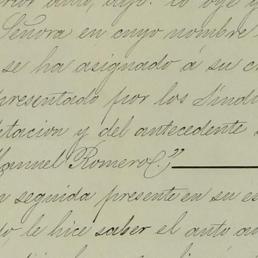 Señora en cuyo nombre
se ha asignado á su c
presentado por los Sindi
tacion y del antecedente
Manuel Romero C,"
n seguida presente en su es
le hice saber el auto an